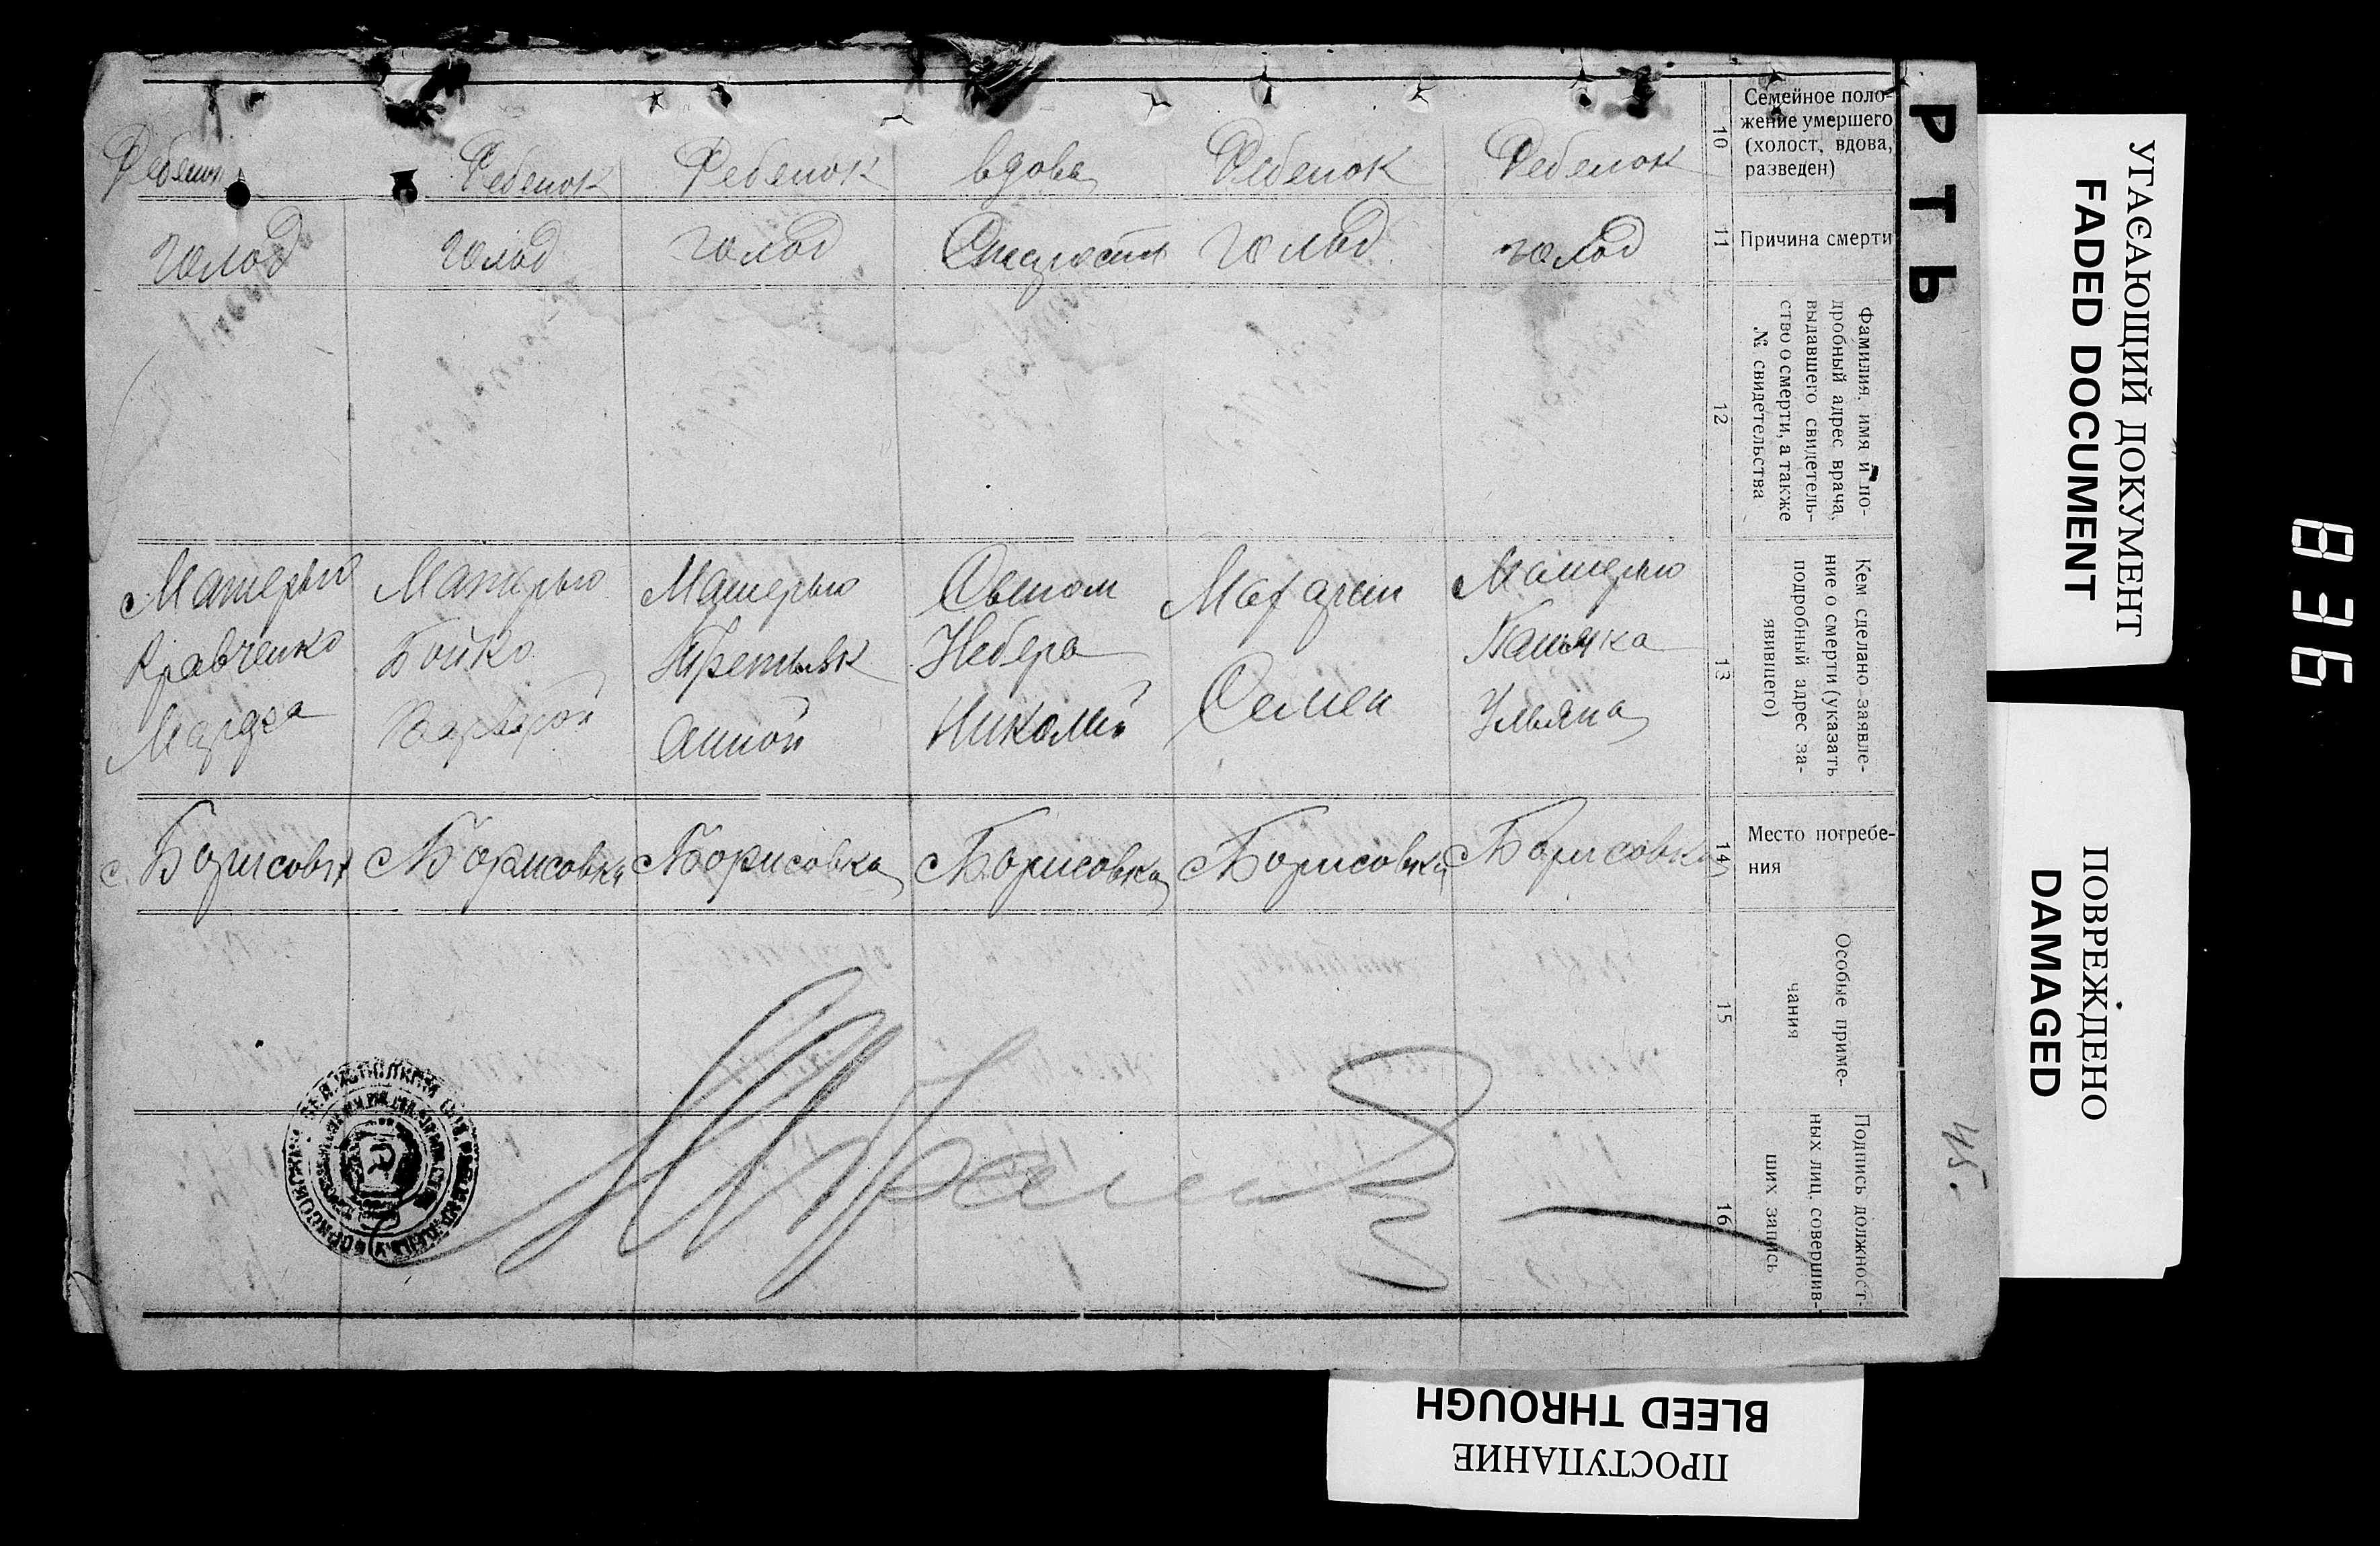 РТЬ
Семейное поло-
жение умершего
(холост, вдова,
разведен)
10
Ребенок
Ребенок
Ребенок
вдова
Ребенок
Ребенок
Причина смерти
11
голод
голод
голод
Старость
голод
голод
Фамилия, имя и по-
дробный адрес врача,
выдавшего свидетель-
ство о смерти, а также
№ свидетельства
12
Кем сделано заявле-
ние о смерти (указать
подробный адрес за-
явившего)
13
Матерью
Кравченко
Марфа
Матерью
Бойко
Варварой
Матерью
Третьяк
Анной
Сыном
Небера
Николай
Семен
Матерью
Ульяна
Место погребе-
ния
14
с. Борисовка
с Борисовка
с Борисовка
с Борисовка
с Борисовка
с Борисовка
Особые приме-
чания
15
Подпись должност-
ных лиц, совершив-
ших запись
16
45.
УГАСАЮЩИЙ ДОКУМЕНТ
FADED DOCUMENT
ПОВРЕЖДЕНО
DAMAGED
BLEED THROUGH
ПРОСТУПАНИЕ
836